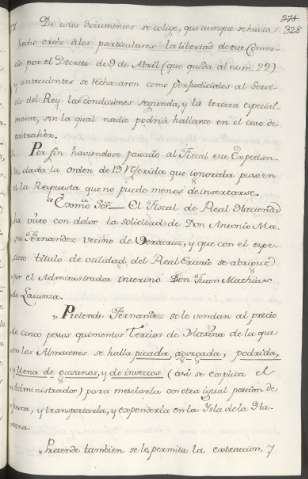 274
328
De estos documentos se colige, que aunque se havia
hecho extensiva a los particulares la libertad de este Comer-
cio por el Decreto de 9 de Abril (que queda al num. 22)
y antecedentes se
del Rey las condiciones segunda, y la tercera especial-
mente, sin la qual nadie podria hallarse en el caso de
contraher.
Por fin haviendose pasado al Fiscal este Expedien-
te, dada la orden de 19
la Respuesta que no puede menos de insertarse.
"Exmo Sor. El Fiscal de Real Hacienda
ha visto con dolor la solicitud de Don Antonio Ma-
Fernandez vecino de Veracruz, y que con el espe-
cioso titulo de utilidad del Real Erario se
por el Administrador interino Don Juan Mathias
de Lacunza.
"Pretende Fernandez se le vendan al precio
de cinco pesos quinientos Tercios de Harina de la que
en los Almacenes se halla picada, agorgojada, podrida,
y llena de gusanos, y de insectos (asi se explica el
Administrador) para mezclarla con otra igual porcion de
buena, y transportarla, y expenderla en la Isla de la Ha-
vana.
"Pretende tambien se le permita la extraccion, y